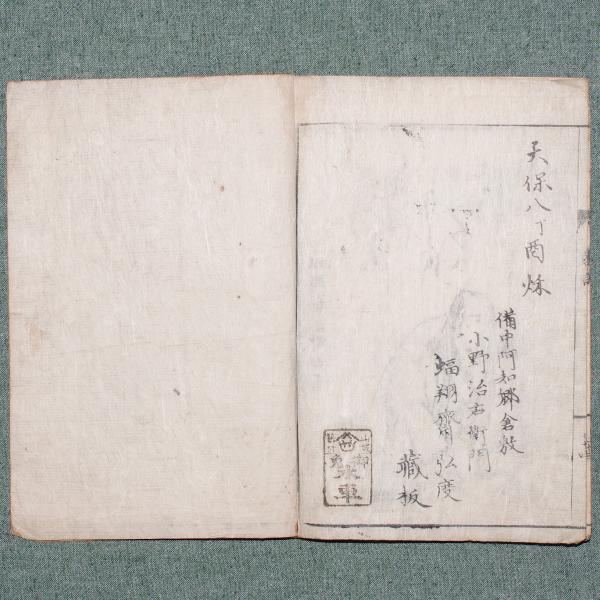 天保八丁酉秌
備中阿知郷倉敷
小野治右衛門
蝠翔齋弘度
藏板
水車